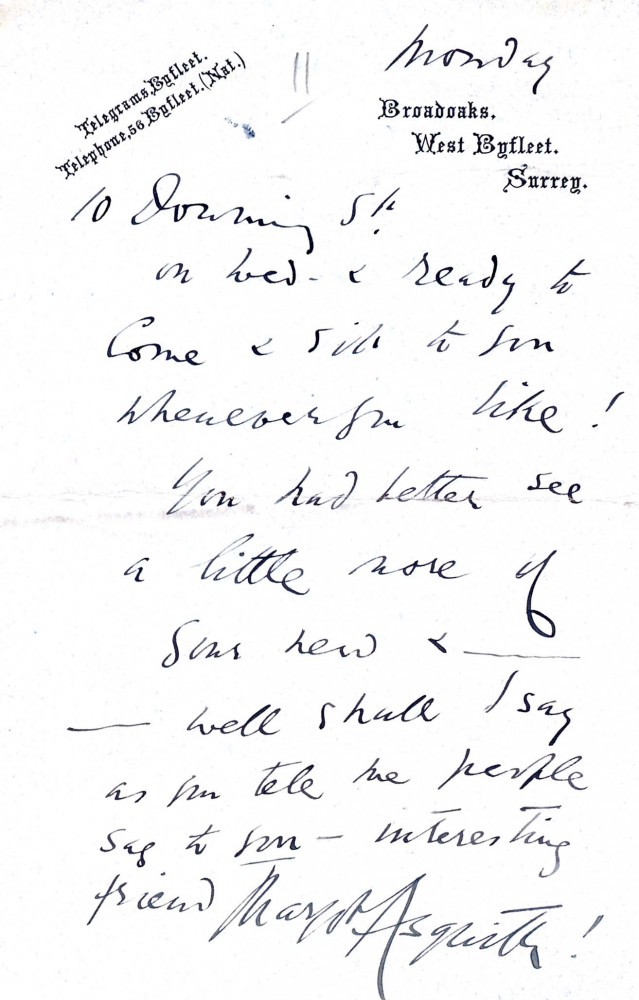 Telegrams, Byfleet.
Telephone, 56 Byfleet. (Nat.)
Monday
Broadoaks,
West Byfleet.
Surrey.
10 Downing St.
on Wed- & ready to
Come & sit to you
whenever you like!
You had better see
a little more of
your new &
— well shall I say
as you tell me people
say to you - interesting
friend Margot Asquith!